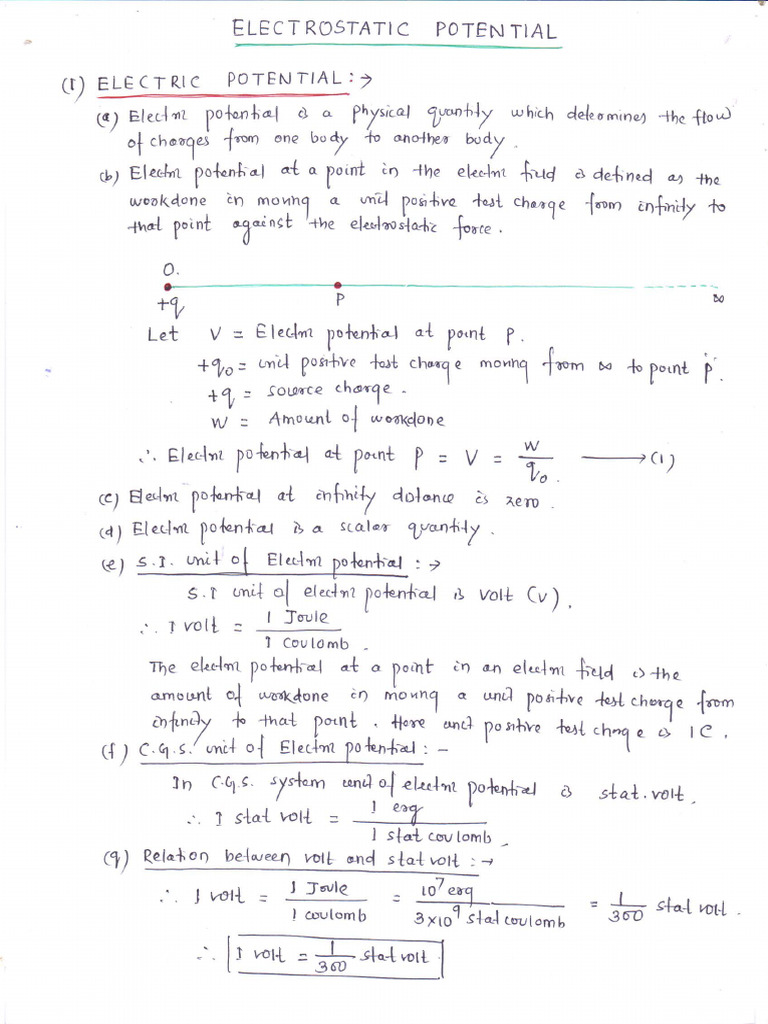 ELECTROSTATIC POTENTIAL
(1) ELECTRIC POTENTIAL :→
(a) Electric potential is a physical quantity which determines the flow
of charges from one body to another body.
(b) Electric potential at a point in the electric field is defined as the
workdone in moving a unit positive test charge from infinity to
that point against the electrostatic force.
O.
+q P ∞
Let V = Electric potential at point P.
+q₀ = unit positive test charge moving from ∞ to point P.
+q = source charge.
W = Amount of workdone
∴ Electric potential at point P = V = W/q₀. ⟶(1)
(c) Electric potential at infinity distance is zero.
(d) Electric potential is a scalar quantity.
(e) S.I. unit of Electric potential :→
S.I unit of electric potential is volt (V).
∴ 1 volt = 1 Joule / 1 Coulomb.
The electric potential at a point in an electric field is the
amount of workdone in moving a unit positive test charge from
infinity to that point. Here unit positive test chnge is 1C.
(f) C.G.S. unit of Electric potential : –
In C.G.S. system unit of electric potential is stat.volt.
∴ 1 stat volt = 1 erg / 1 stat coulomb.
(g) Relation between volt and stat volt :→
∴ 1 volt = 1 Joule / 1 coulomb = 10⁷ erg / 3×10⁹ stat coulomb = 1/300 stat volt.
∴ 1 volt = 1/300 stat volt